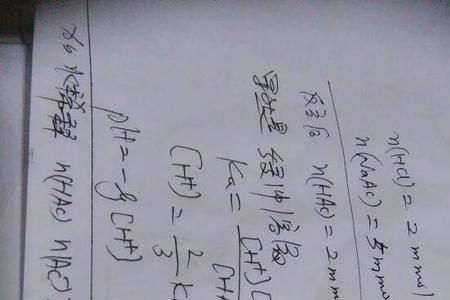 n(HCl) = 2 mmol
n(NaAc) = 5 mmo
反应后 n(HAc) = 2 mm
缓冲溶液
Ka = [H+][
[H+] = 2/3 K
pH = -lg[H+]
n(HAc) n(Ac-)